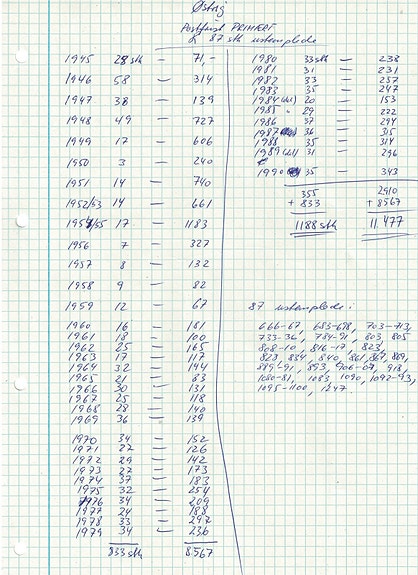 Østrig
Postfrist PRIMÆRT
87 stk ustemplede
1945 28 stk — 71,-
1946 58 — 314
1947 38 — 139
1948 49 — 727
1949 17 — 606
1950 3 — 240
1951 14 — 740
1952/53 14 — 661
1954/55 17 — 1183
1956 7 — 327
1957 8 — 132
1958 9 — 82
1959 12 — 67
1960 16 — 181
1961 18 — 100
1962 25 — 165
1963 17 — 117
1964 32 — 194
1965 21 — 83
1966 30 — 131
1967 25 — 118
1968 28 — 140
1969 36 — 139
1970 34 — 152
1971 27 — 126
1972 29 — 142
1973 27 — 173
1974 37 — 183
1975 32 — 254
1976 34 — 209
1977 24 — 188
1978 33 — 297
1979 34 — 236
833 stk 8567
1980 33 stk — 238
1981 31 — 231
1982 33 — 237
1983 35 — 247
1984 20 — 153
1985 29 — 222
1986 37 — 294
1987 36 — 315
1988 35 — 314
1989 31 — 296
1990 35 — 343
355 2910
+ 833 + 8567
1188 stk 11.477
87 ustemplede:
666-67, 683-698, 703-713,
733-36, 784-91, 803, 805
808-10, 816-17, 823,
823, 834, 840, 861, 867, 869,
889-91, 893, 906-07, 918,
1080-81, 1083, 1090, 1092-93,
1095-1100, 1247.